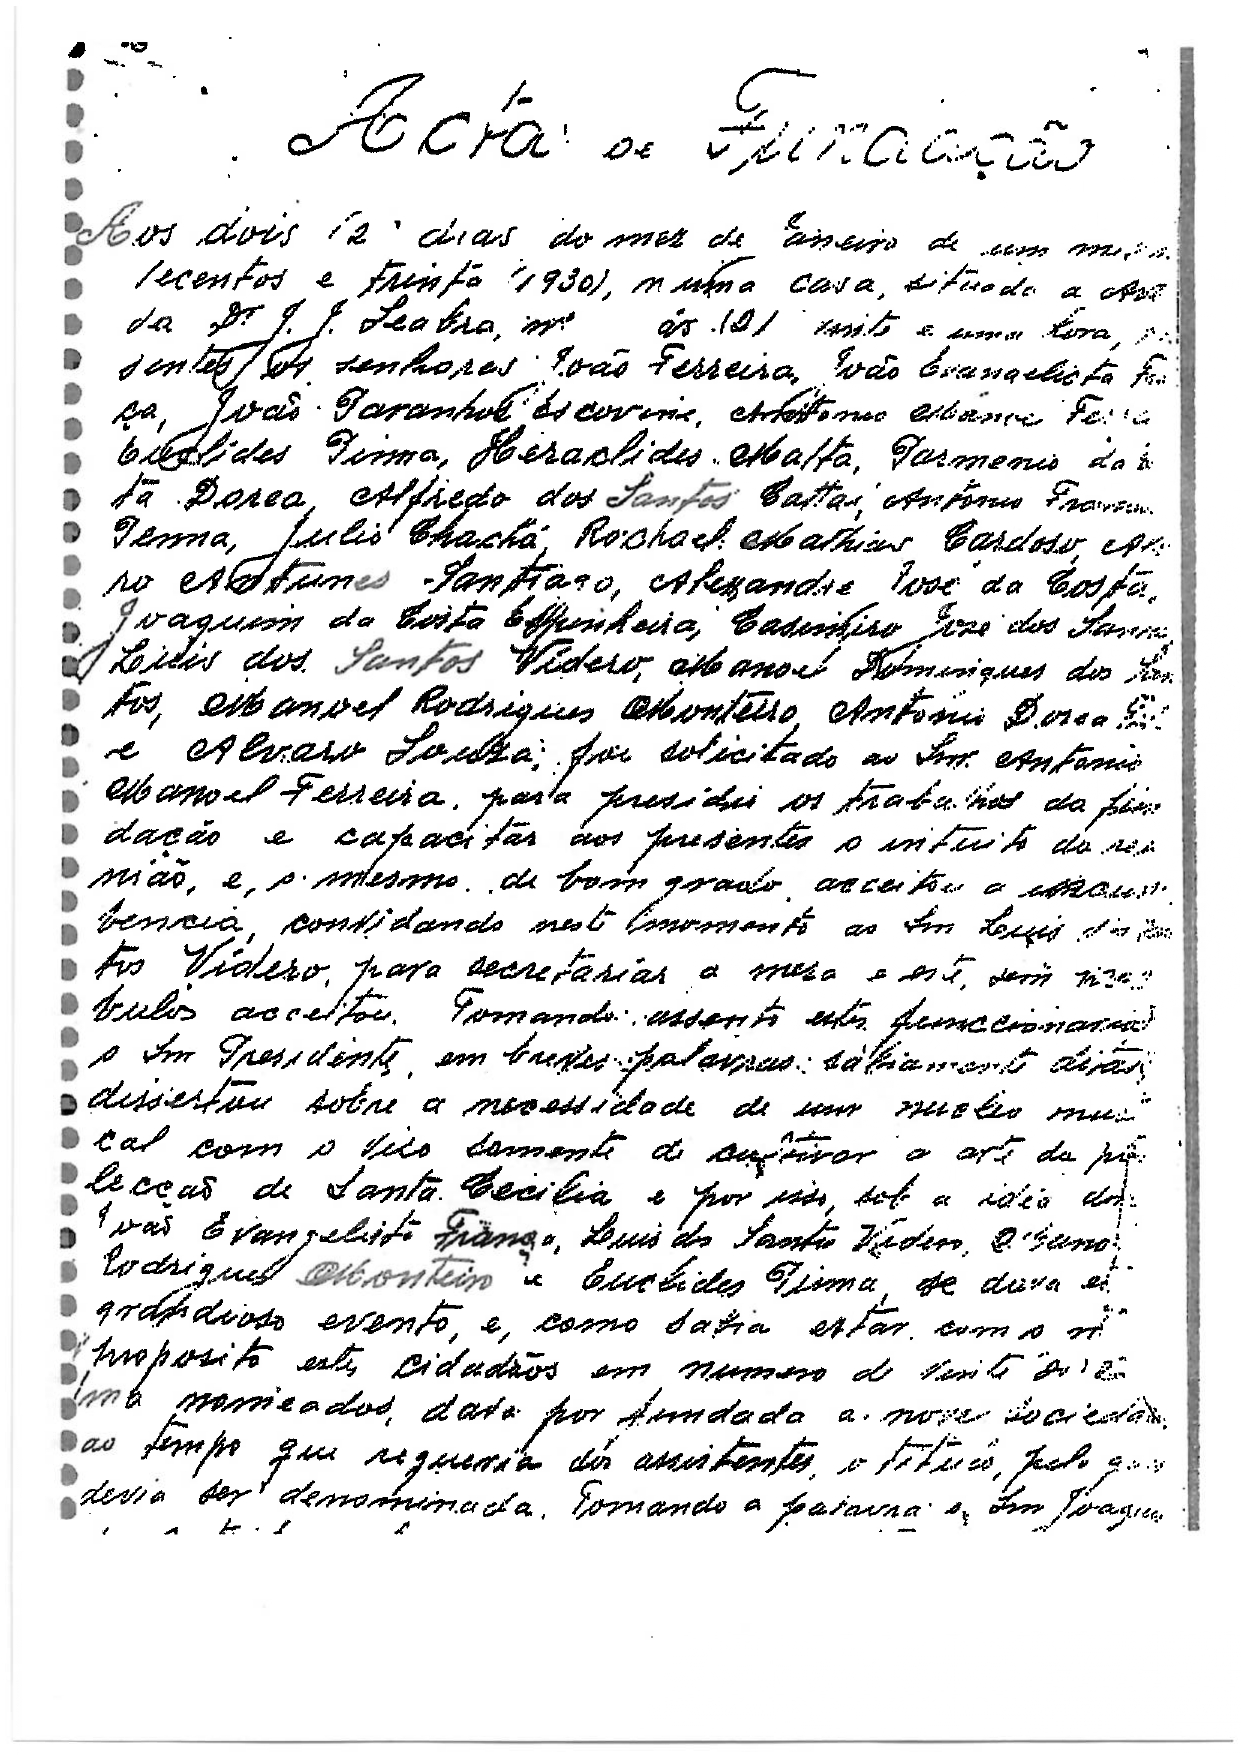 Acta de Fundação
Aos dois (2) dias do mez de Janeiro de um
lecentos e trinta (1930), numa casa, situada a
da Dr J. J. Seabra, nº ás (21 vinte e uma hora,
sentes os senhores João Ferreira, João Evangelista
ça, João Paranhos Escovine, Antonio
Euclides Pinna, Heraclides Malta, Parmenio da
ta Dorea, Alfredo dos Santos Cattai, Antônio
Penna, Julio Chachá, Rochael Mathias Cardoso,
ro Antunes Santiago, Alexandre José da Costa,
Joaquim da Costa Espinheira, Casimiro José dos
Luis dos Santos Videro, Manoel Domingues dos
tos, Manoel Rodrigues Monteiro, Antônio Dorea
e Alvaro Souza; foi solicitado ao Snr. Antonio
Manoel Ferreira, para presidir os trabalhos da
dação e capacitar aos presentes o intuito da
nião, e, o mesmo de bom grado acceitou a
bencia, convidando neste momento ao Snr Luis
tos Videro, para secretariar a mesa e este, sem
bulos acceitou. Tomando assento estes funccionarios
o Snr Presidente, em breves palavras sabiamente
dissertou sobre a necessidade de um nucleo
cal com o viso somente de cultivar a arte da
lecção de Santa Cecilia e por isso, sob a idéa de
João Evangelista França, Luis do Santos Videro,
Rodrigues Monteiro e Euclides Pinna, se dava
grandioso evento, e, como sabia estar com o
proposito estes cidadãos em numero de vinte
nomeados, dava por fundada a nova
ao tempo que requeria dos assistentes, o titulo, pelo
devia ser denominada. Tomando a palavra o Snr